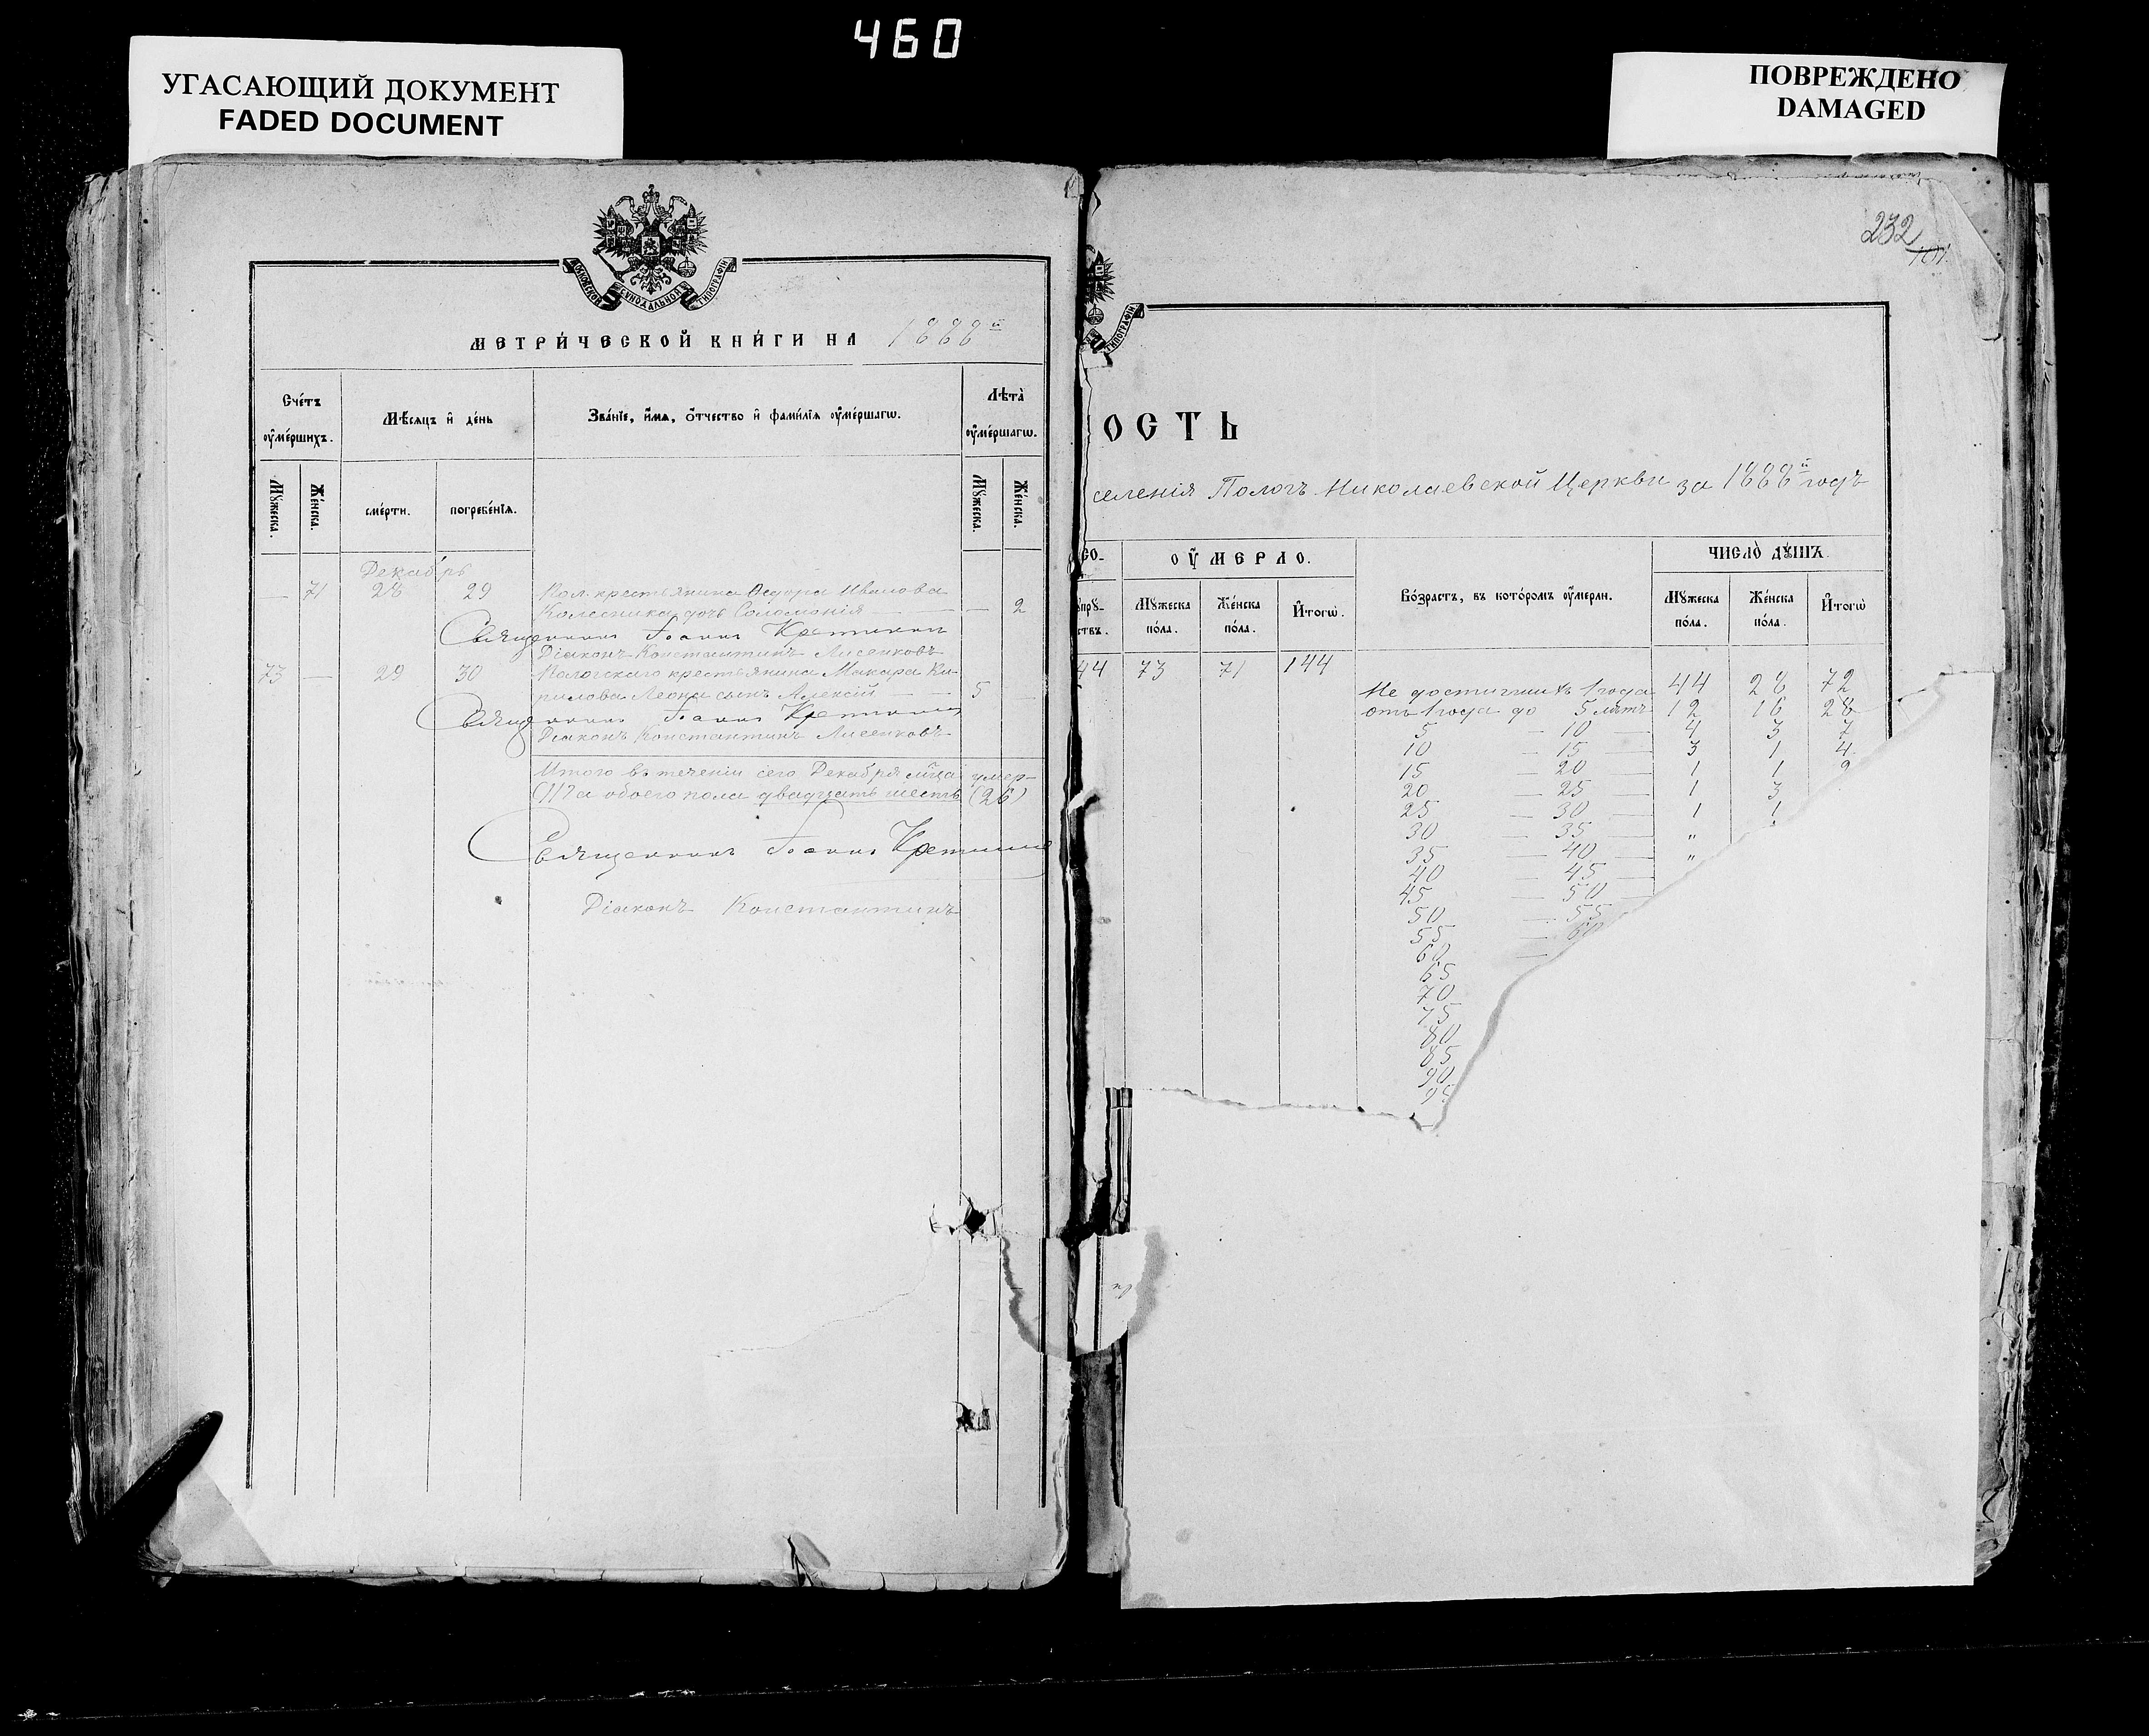 460
УГАСАЮЩИЙ ДОКУМЕНТ
FADED DOCUMENT
ПОВРЕЖДЕНО
DAMAGED
МОСКОВСКОЙ СѴНОДАЛЬНОЙ ТИПОГРАФІИ
МЕТРИ́ЧЕСКОЙ КНИ́ГИ НА 1888й
Сче́тъ ᲂу҆ме́ршихъ.
Мѣ́сяцъ и҆ де́нь
Зва́нїе, и҆́мѧ, ѻ҆́тчество и҆ фами́лїѧ ᲂу҆ме́ршагѡ.
Лѣта̀ ᲂу҆ме́ршагѡ.
Мꙋ́жеска.
Же́нска.
сме́рти.
погребе́нїѧ.
Мꙋ́жеска.
Же́нска.
Декабрь
— 71 28 29 Пол. крестьянина Ѳедора Иванова
Колесника дочь Соломонія — — 2
Священникъ Іоаннъ
Діаконъ Константинъ Лисенковъ
73 — 29 30 Пологскаго крестьянина Макара Ки-
рилова Леона сынъ Алексій — 5 —
Священникъ Іоаннъ
Діаконъ Константинъ Лисенковъ
Итого въ теченіи сего Декабря м-ца умер-
(117а обоего пола двадцать шесть (26)
Священникъ Іоаннъ
Діаконъ Константинъ
232
101
ТИПОГРАФІИ
ОСТЬ
селенія Пологъ Николаевской Церкви за 1888й годъ
СО-
ОУ҆МЕРЛО.
Во́зрастъ, въ кото́ромъ ᲂу҆́мерли.
ЧИСЛО̀ ДꙊШЪ.
пру-
ствъ.
Мꙋ́жеска по́ла.
Же́нска по́ла.
И҆тогѡ̀.
Мꙋ́жеска по́ла.
Же́нска по́ла.
И҆тогѡ̀
44 73 71 144
Не достигшихъ 1 года 44 28 72
отъ 1 года до 5 лѣтъ 12 16 28
5 — 10 — 4 3 7
10 — 15 — 3 1 4
15 — 20 — 1 1 2
20 — 25 — 1 3
25 — 30 — 1 1
30 — 35 — "
35 — 40 — "
40 — 45 —
45 — 50 —
50 — 55
55 — 60
60 —
65
70
75
80
85
90
95